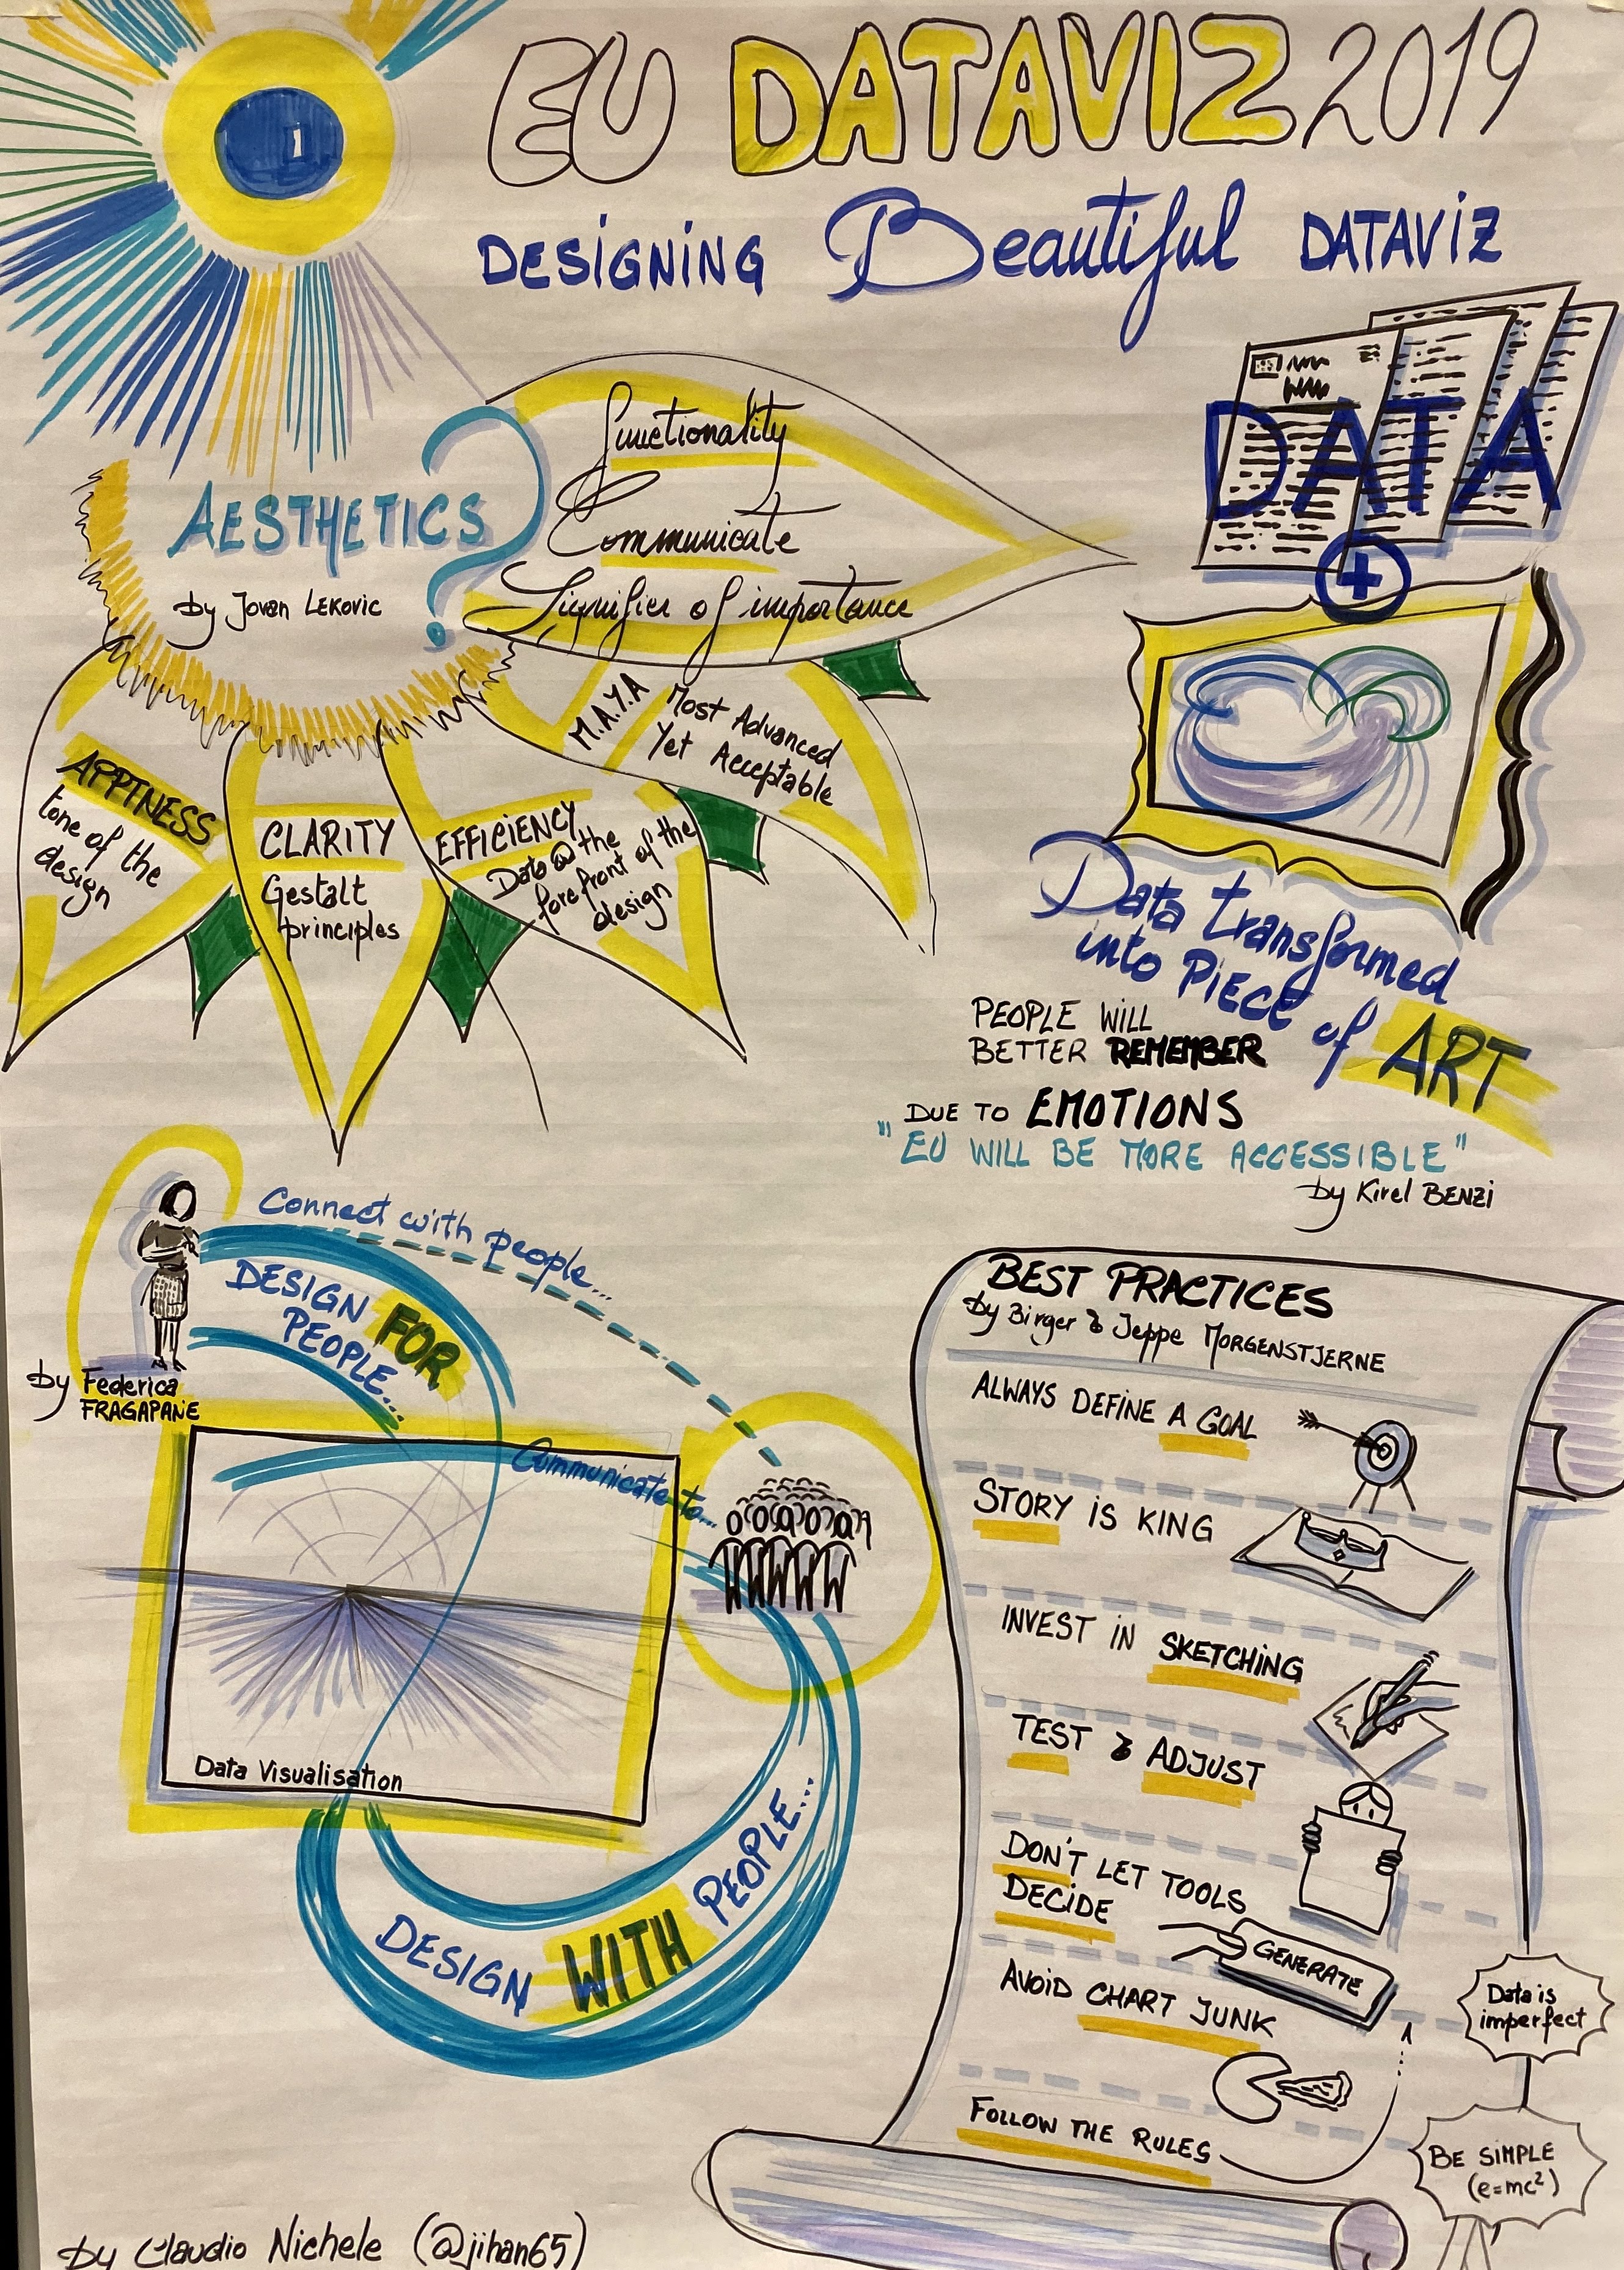 EU DATAVIZ 2019
DESIGNING Beautiful DATAVIZ
AESTHETICS?
by Jovan LEKOVIC
functionality
Communicate
Signifier of importance
APPTNESS
tone of the
design
CLARITY
Gestalt
principles
EFFICIENCY
Data @ the
forefront of the
design
M.A.Y.A
Most Advanced
Yet Acceptable
DATA
+
Data transformed
into PIECE
of ART
PEOPLE WILL
BETTER REMEMBER
DUE TO EMOTIONS
"EU WILL BE MORE ACCESSIBLE"
by Kirel BENZI
Connect with people...
DESIGN FOR
PEOPLE...
by Federica
FRAGAPANE
Communicate to...
Data Visualisation
DESIGN WITH PEOPLE...
BEST PRACTICES
by Birger & Jeppe MORGENSTJERNE
ALWAYS DEFINE A GOAL
STORY IS KING
INVEST IN SKETCHING
TEST & ADJUST
DON'T LET TOOLS
DECIDE
GENERATE
AVOID CHART JUNK
FOLLOW THE RULES
Data is
imperfect
BE SIMPLE
(e=mc²)
by Claudio Nichele (@jihan65)